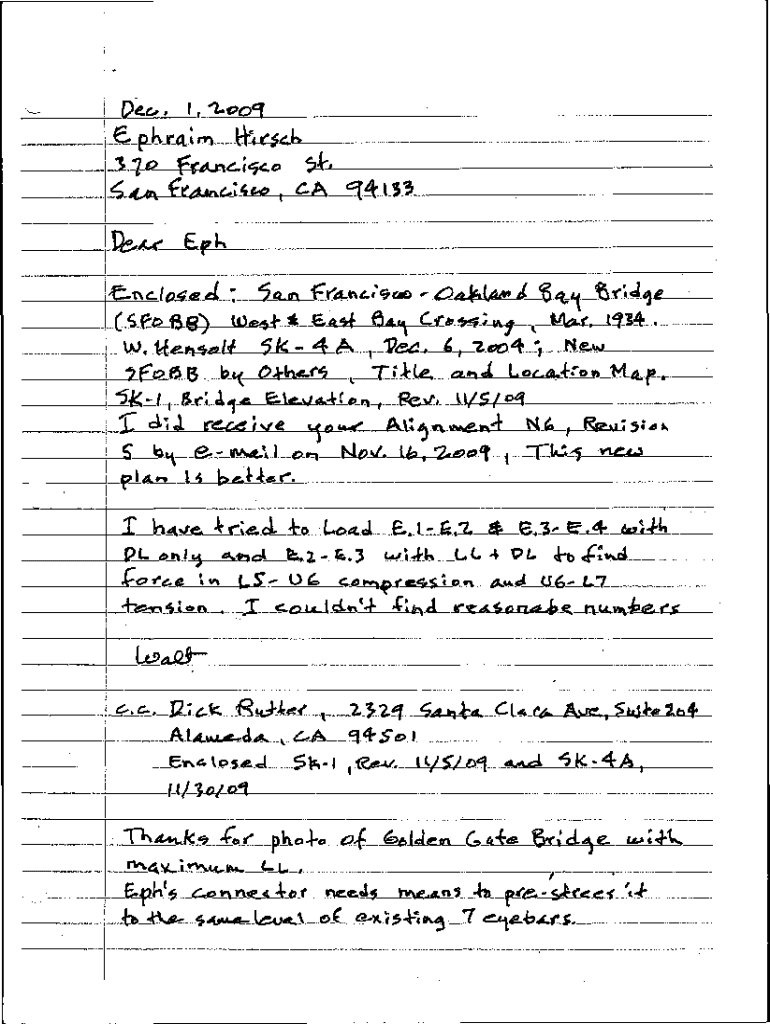 Dec. 1, 2009
Ephraim Hirsch
370 Francisco St.
San Francisco, CA 94133
Dear Eph
Enclosed: San Francisco-Oakland Bay Bridge
(SFOBB) West & East Bay Crossing, Mar. 1934.
W. Hensolt SK-4A, Dec. 6, 2004; New
SFOBB by Others, Title and Location Map.
SK-1, Bridge Elevation, Rev. 11/5/09
I did receive your Alignment N6, Revision
5 by e-mail on Nov. 16, 2009, This new
plan is better.
I have tried to Load E.1-E.2 & E.3-E.4 with
DL only and E.2-E.3 with LL+DL to find
force in L5-U6 compression and U6-L7
tension. I couldn't find reasonabe numbers
Walt
c.c. Dick Rutter, 2329 Santa Clara Ave, Suite 204
Alameda, CA 94501
Enclosed SK-1, Rev. 11/5/09 and SK-4A,
11/30/09
Thanks for photo of Golden Gate Bridge with
maximum LL.
Eph's connector needs means to pre-strees it
to the same level of existing 7 eyebars.